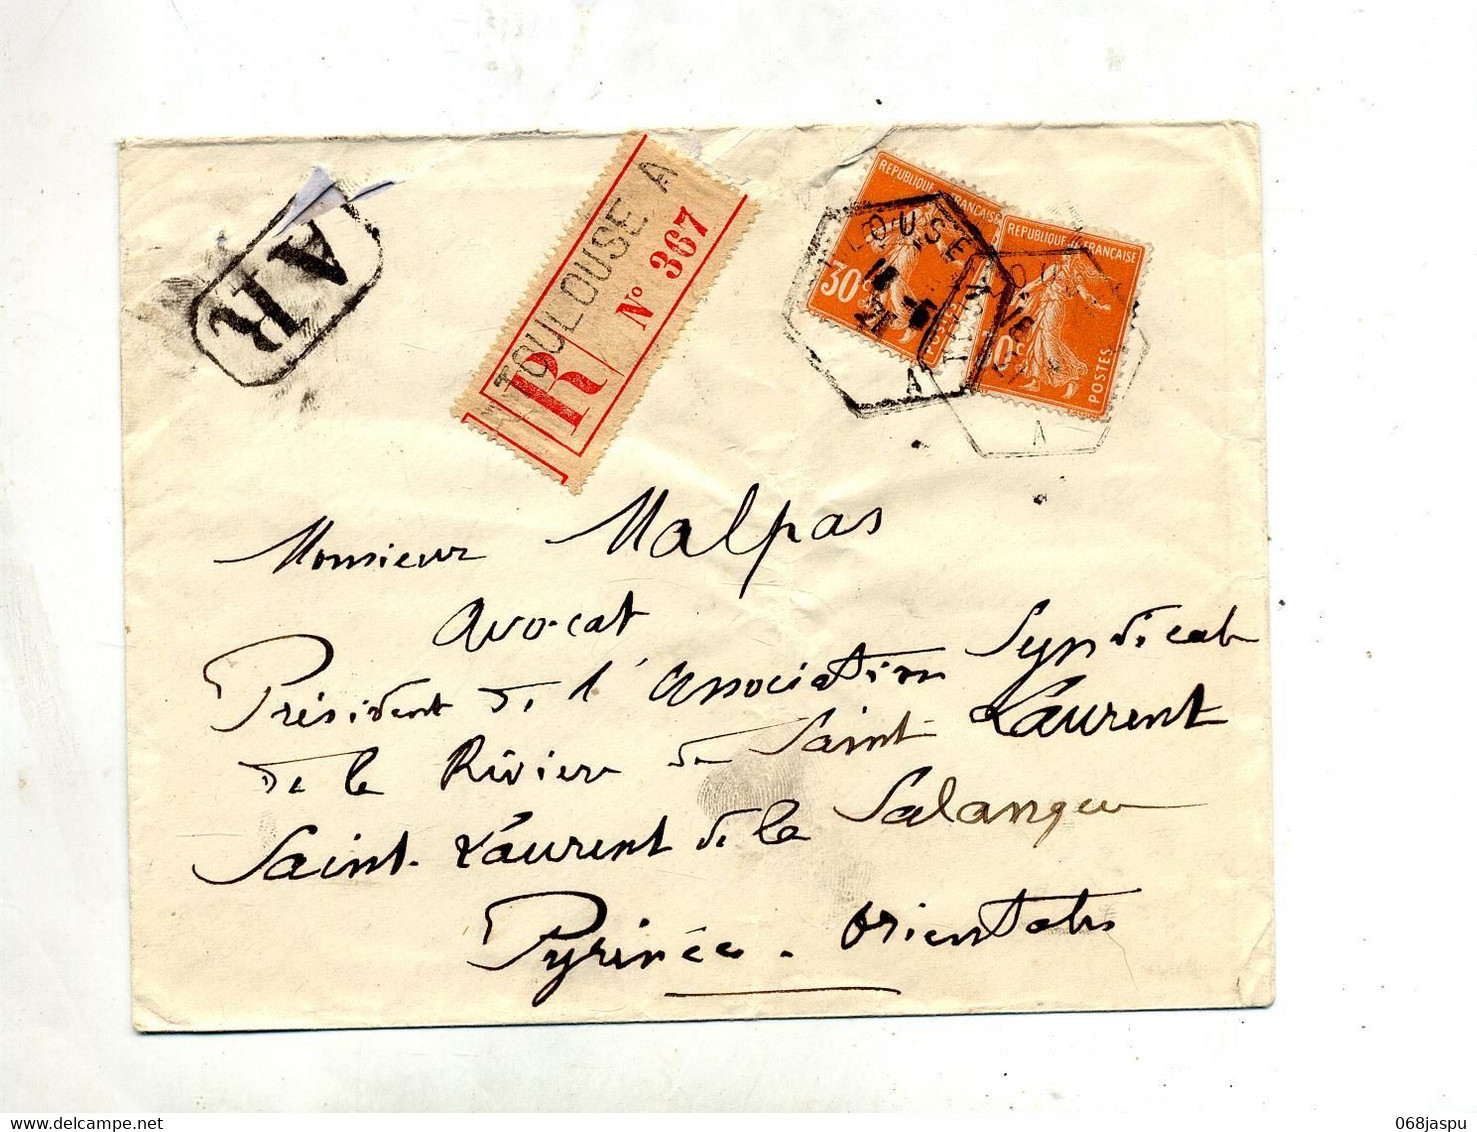 AR
TOULOUSE A
R Nº 367
REPUBLIQUE FRANÇAISE
30c
REPUBLIQUE FRANÇAISE
POSTES
A
A
Monsieur Malpas
Avocat
Président de l'Association Syndicat
de la Rivière de Saint-Laurent
Saint-Laurent de la Salanque
Pyrinées-Orientales
068jaspu